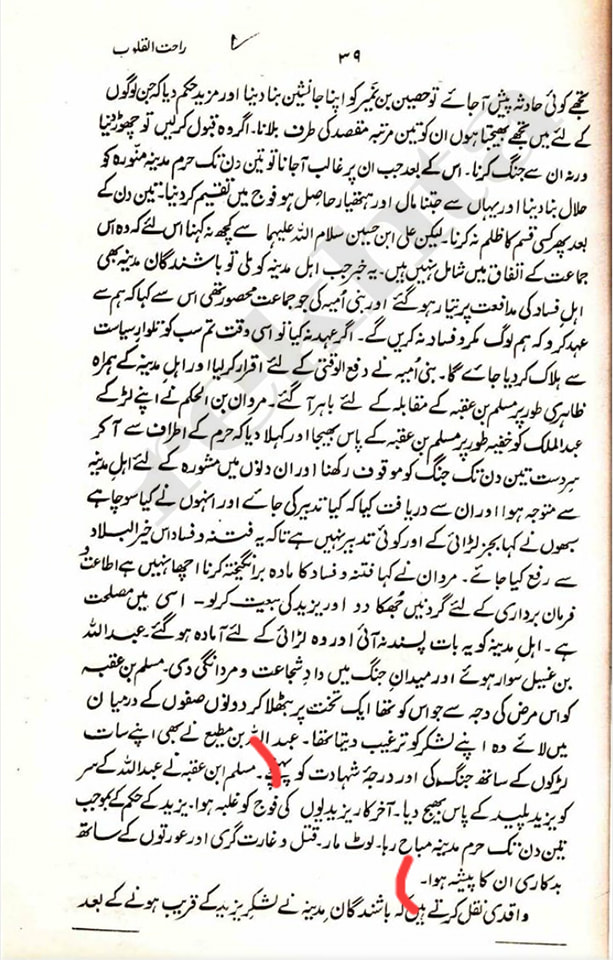 راحت القلوب
۳۹
تجھے کوئی حادثہ پیش آجائے تو حصین بن نمیر کو اپنا جانشین بنا دینا اور مزید حکم دیا کہ جن لوگوں
کے لئے میں تجھے بھیجتا ہوں ان کو تین مرتبہ مقصد کی طرف بلانا۔ اگر وہ قبول کرلیں تو چھوڑ دینا
ورنہ ان سے جنگ کرنا۔ اس کے بعد جب ان پر غالب آجانا تو تین دن تک حرم مدینہ منورہ کو
حلال بنا دینا اور یہاں سے جتنا مال اور ہتھیار حاصل ہو فوج میں تقسیم کر دینا۔ تین دن کے
بعد پھر کسی قسم کا ظلم نہ کرنا۔ لیکن علی ابن حسین سلام اللہ علیہما سے کچھ نہ کہنا اس لئے کہ وہ اس
جماعت کے اتفاق میں شامل نہیں ہیں۔ یہ خبر جب اہل مدینہ کو ملی تو باشندگان مدینہ بھی
اہل فساد کی مدافعت پر تیار ہو گئے اور بنی اُمیہ کی جو جماعت محصور تھی اس سے کہا کہ ہم سے
عہد کرو کہ ہم لوگ مکر و فساد نہ کریں گے۔ اگر عہد نہ کیا تو اسی وقت تم سب کو تلوار سیاست
سے ہلاک کر دیا جائے گا۔ بنی اُمیہ نے دفع الوقتی کے لئے اقرار کر لیا اور اہل مدینہ کے ہمراہ
ظاہری طور پر مسلم بن عقبہ کے مقابلہ کے لئے باہر آگئے۔ مروان بن الحکم نے اپنے لڑکے
عبد الملک کو خفیہ طور پر مسلم بن عقبہ کے پاس بھیجا اور کہلا دیا کہ حرم کے اطراف سے آکر
سردست تین دن تک جنگ کو موقوف رکھنا اور ان دنوں میں مشورہ کے لئے اہل مدینہ
سے متوجہ ہوا اور ان سے دریافت کیا کہ کیا تدبیر کی جائے اور انہوں نے کیا سوچا ہے
سبھوں نے کہا بجز لڑائی کے اور کوئی تدبیر نہیں ہے تاکہ یہ فتنہ و فساد اس خیر البلاد
سے رفع کیا جائے۔ مروان نے کہا فتنہ و فساد کا مادہ برانگیختہ کرنا اچھا نہیں ہے اطاعت و
فرمان برداری کے لئے گردنیں جھکا دو اور یزید کی بیعت کرلو۔ اسی میں مصلحت
ہے۔ اہل مدینہ کو یہ بات پسند نہ آئی اور وہ لڑائی کے لئے آمادہ ہو گئے۔ عبداللہ
بن غسیل سوار ہوئے اور میدان جنگ میں داد شجاعت و مردانگی دی۔ مسلم بن عقبہ
کو اس مرض کی وجہ سے جو اس کو تھا ایک تخت پر بٹھلا کر دونوں صفوں کے درمیان
میں لائے وہ اپنے لشکر کو ترغیب دیتا تھا۔ عبد اللہ بن مطیع نے بھی اپنے سات
لڑکوں کے ساتھ جنگ کی اور درجۂ شہادت کو پہنچے۔ مسلم ابن عقبہ نے عبداللہ کے سر
کو یزید پلید کے پاس بھیج دیا۔ آخر کار یزیدیوں کی فوج کو غلبہ ہوا۔ یزید کے حکم کے بموجب
تین دن تک حرم مدینہ مباح رہا۔ لوٹ مار۔ قتل و غارت گری اور عورتوں کے ساتھ
بدکاری ان کا پیشہ ہوا۔
واقدی نقل کرتے ہیں کہ باشندگان مدینہ نے لشکر یزید کے قریب ہونے کے بعد
rekhta